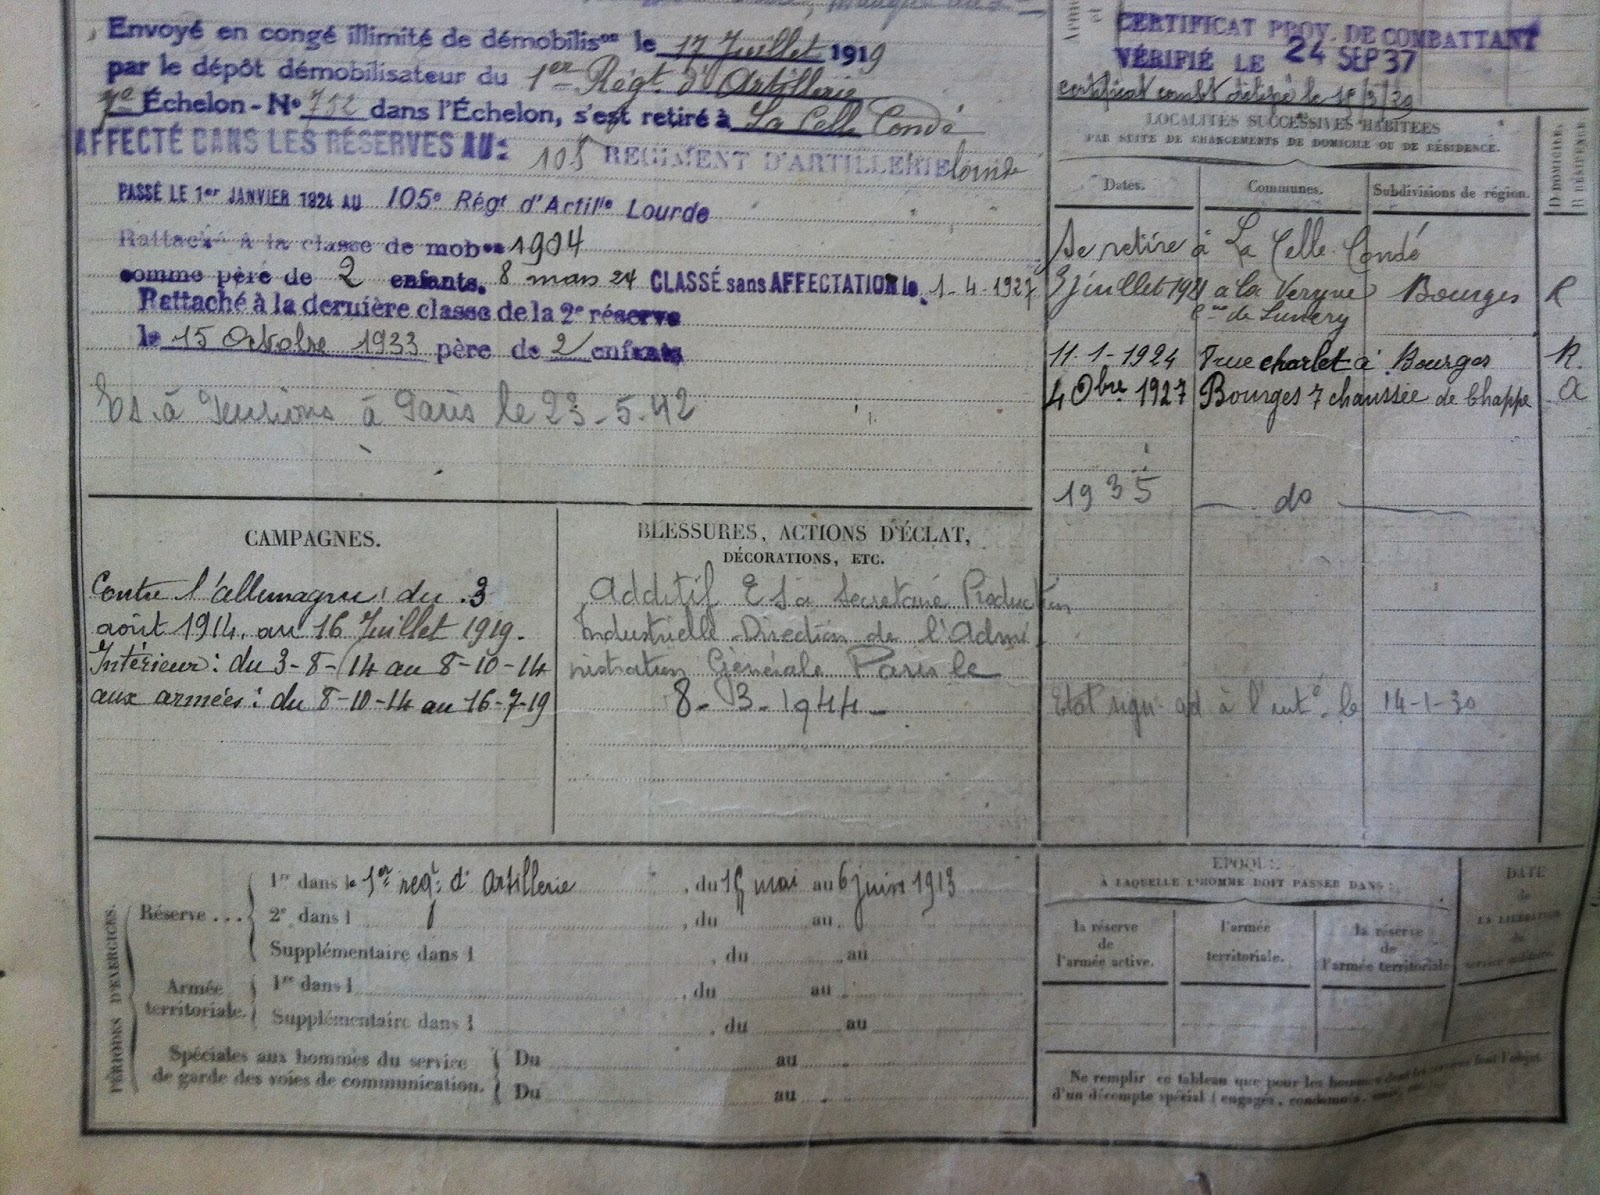 Envoyé en congé illimité de démobilis^on le 17 Juillet 1919
par le dépôt démobilisateur du 1er Régt. d'Artillerie
Échelon - N° 752 dans l'Échelon, s'est retiré à La Celle Condé
AFFECTÉ DANS LES RÉSERVES AU:
105 REGIMENT D'ARTILLERIE lourde
PASSÉ LE 1er JANVIER 1924 AU 105e Régt d'Artille Lourde
Rattaché à la classe de mob^on 1904
comme père de 2 enfants. 8 mars 24 CLASSÉ sans AFFECTATION le 1-4-1927
Rattaché à la dernière classe de la 2e réserve
le 15 Octobre 1933 père de 2 enfants
Es. à Pensions à Paris le 23-5-42
CERTIFICAT PROV. DE COMBATTANT
VÉRIFIÉ LE 24 SEP 37
certificat combt délivré le
LOCALITÉS SUCCESSIVES HABITÉES
PAR SUITE DE CHANGEMENTS DE DOMICILE OU DE RÉSIDENCE.
Dates. Communes. Subdivisions de région.
Se retire à La Celle Condé
3 juillet 1921 à la Bourges R
de Lunery
11-1-1924 rue charlet à Bourges R.
4 Obre 1927 Bourges 7 chaussée de Chappe
1935 do
Etat sign. le 14-1-30
CAMPAGNES.
Contre l'allemagne: du 3
août 1914 au 16 Juillet 1919.
Intérieur: du 3-8-14 au 8-10-14
aux armées: du 8-10-14 au 16-7-19
BLESSURES, ACTIONS D'ÉCLAT,
DÉCORATIONS, ETC.
Additif Es à Secrétarié Production
Industrielle Direction de l'Admi
nistration Générale Paris le
8-3-1944-
PÉRIODES D'EXERCICES.
Réserve ...
1re dans le 1er regt. d'artillerie, du 15 mai au 6 juin 1913
2e dans l , du au
Supplémentaire dans l , du au
Armée territoriale.
1re dans l , du au
Supplémentaire dans l , du au
Spéciales aux hommes du service
de garde des voies de communication.
Du au
Du au
ÉPOQUE
À LAQUELLE L'HOMME DOIT PASSER DANS:
la réserve de l'armée active.
l'armée territoriale.
la réserve de l'armée territoriale
DATE de LA LIBÉRATION du service militaire.
Ne remplir ce tableau que pour les hommes dont les services font l'objet
d'un décompte spécial (engagés, condamnés,